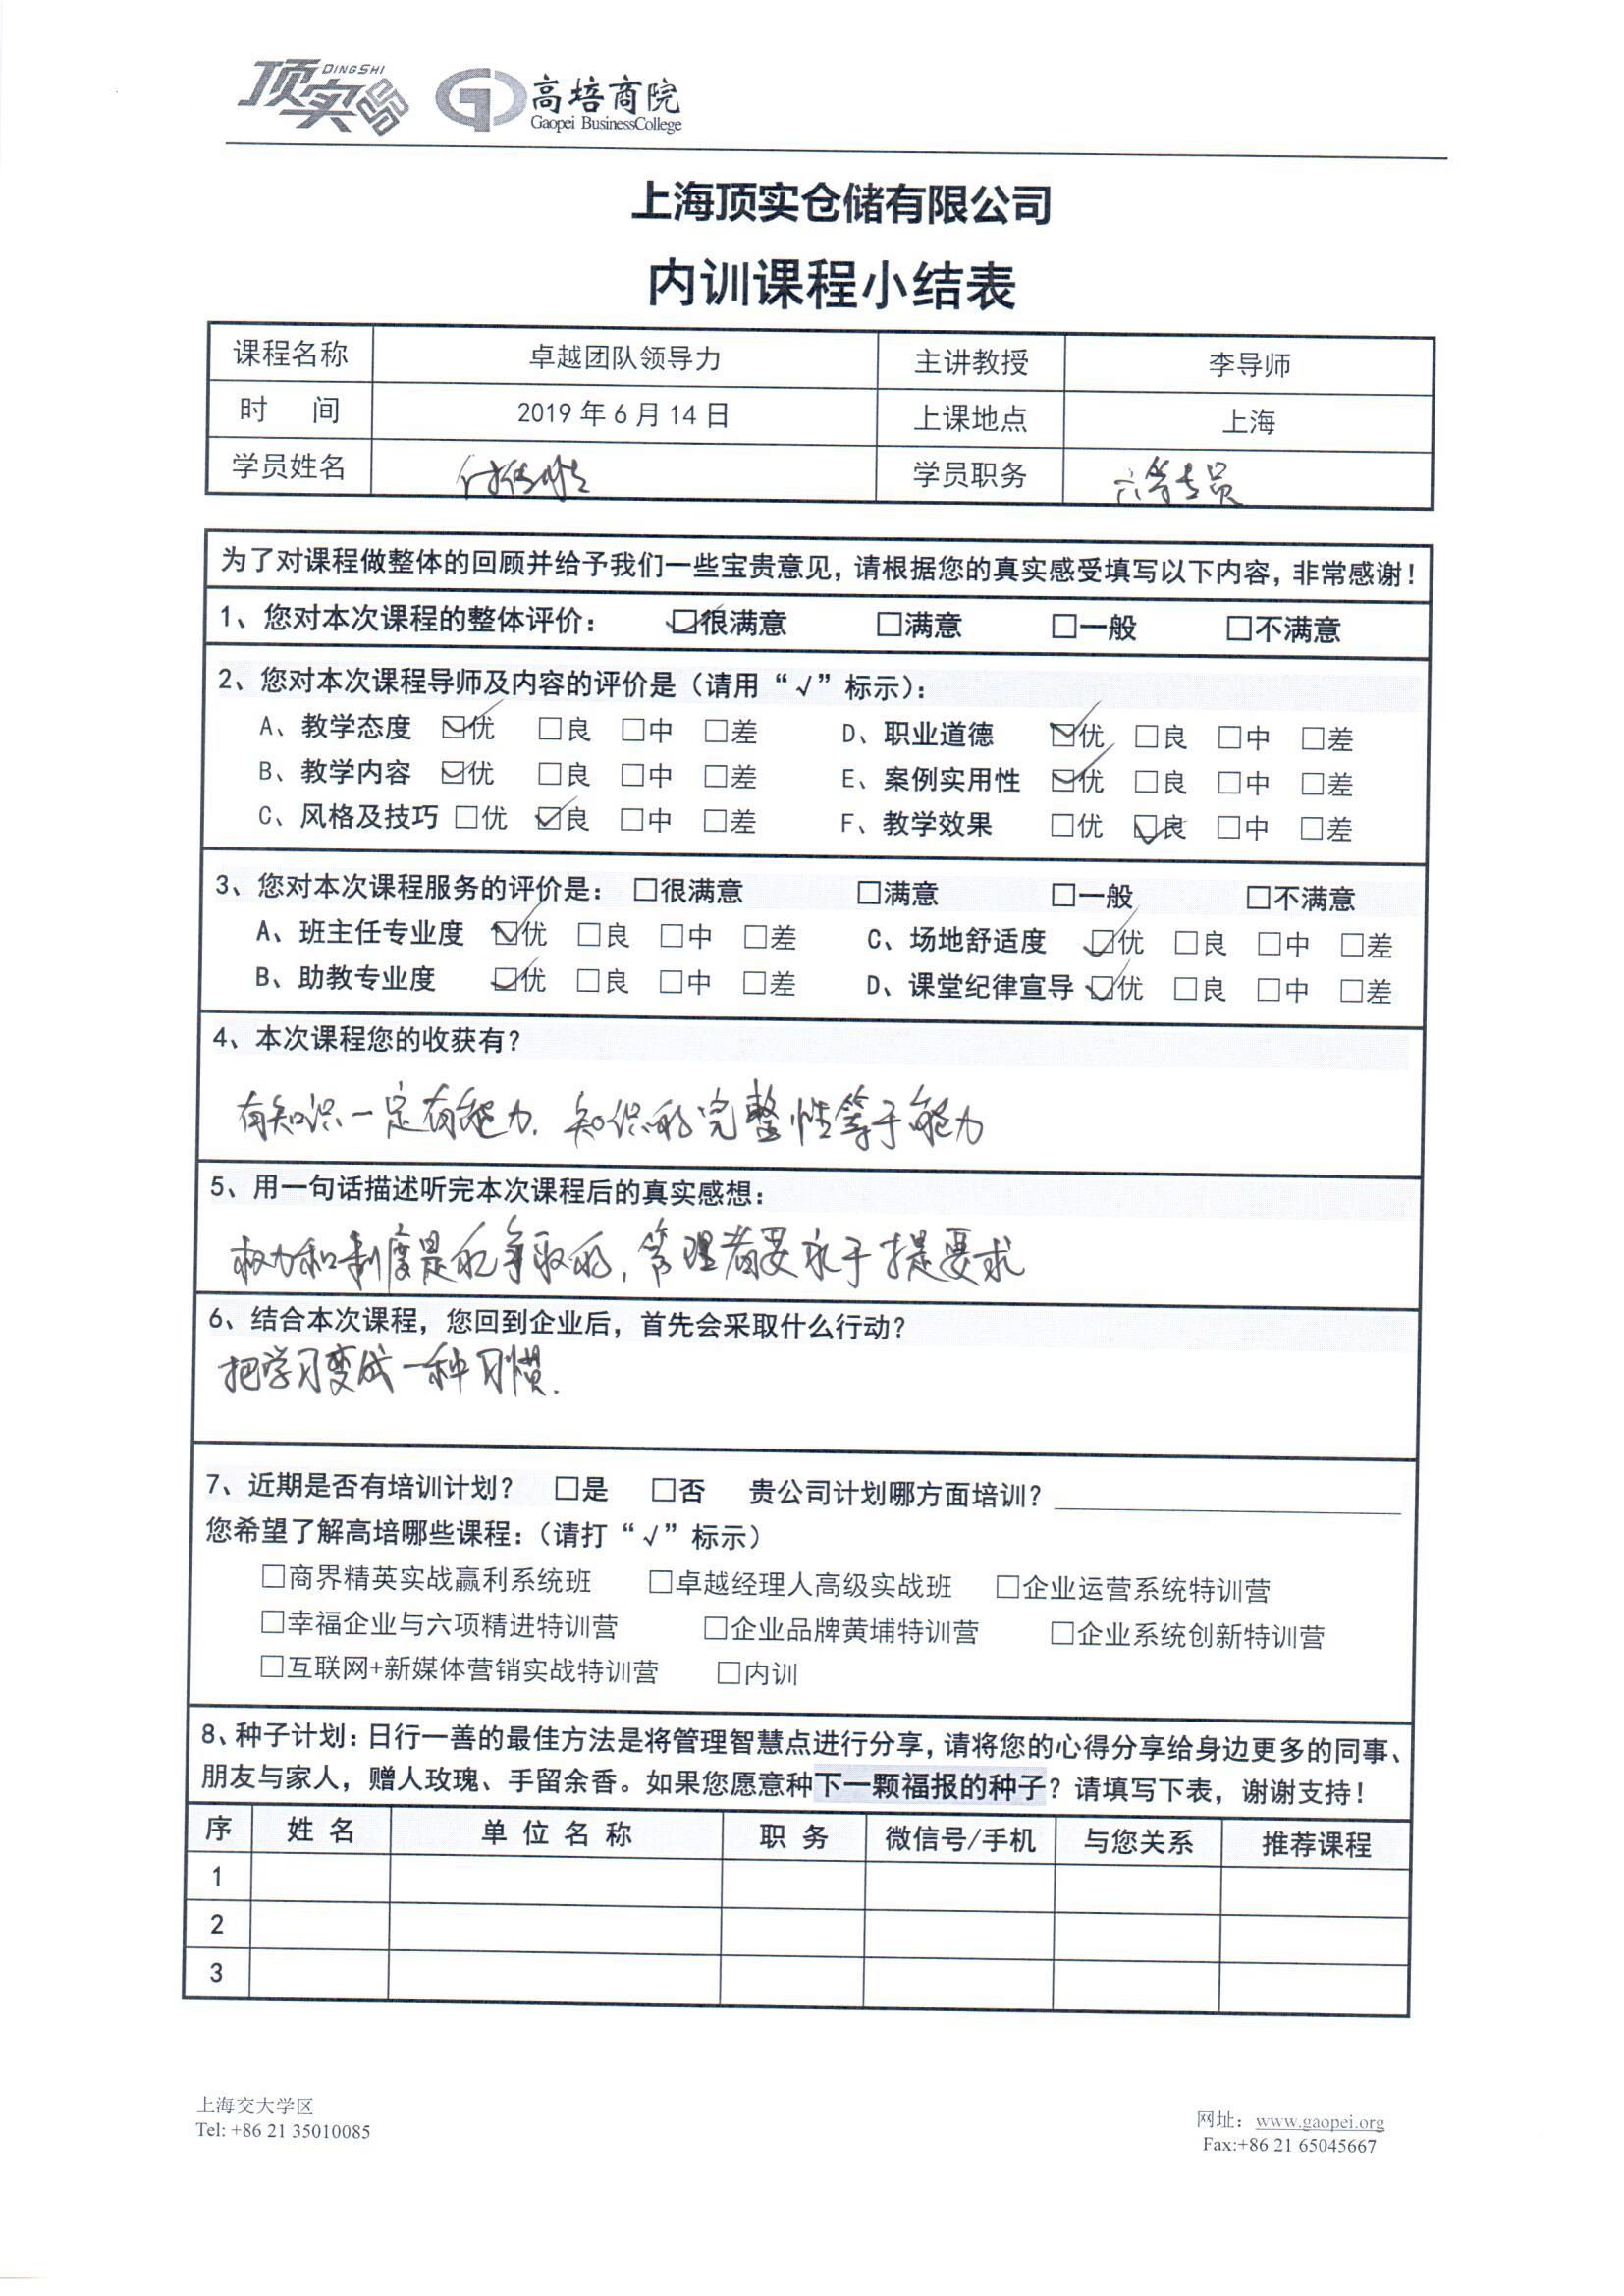 顶实 DINGSHI
高培商院
Gaopei BusinessCollege
上海顶实仓储有限公司
内训课程小结表
课程名称 卓越团队领导力 主讲教授 李导师
时 间 2019年6月14日 上课地点 上海
学员姓名 学员职务 专员
为了对课程做整体的回顾并给予我们一些宝贵意见，请根据您的真实感受填写以下内容，非常感谢！
1、您对本次课程的整体评价： ☑很满意 □满意 □一般 □不满意
2、您对本次课程导师及内容的评价是（请用“√”标示）：
A、教学态度 ☑优 □良 □中 □差 D、职业道德 ☑优 □良 □中 □差
B、教学内容 ☑优 □良 □中 □差 E、案例实用性 ☑优 □良 □中 □差
C、风格及技巧 □优 ☑良 □中 □差 F、教学效果 □优 ☑良 □中 □差
3、您对本次课程服务的评价是：□很满意 □满意 □一般 □不满意
A、班主任专业度 ☑优 □良 □中 □差 C、场地舒适度 ☑优 □良 □中 □差
B、助教专业度 ☑优 □良 □中 □差 D、课堂纪律宣导 ☑优 □良 □中 □差
4、本次课程您的收获有？
有知识一定有能力. 知识的完整性等于能力
5、用一句话描述听完本次课程后的真实感想：
权力和制度是争取的, 管理者要敢于提要求
6、结合本次课程，您回到企业后，首先会采取什么行动？
把学习变成一种习惯.
7、近期是否有培训计划？ □是 □否 贵公司计划哪方面培训？
您希望了解高培哪些课程：（请打“√”标示）
□商界精英实战赢利系统班 □卓越经理人高级实战班 □企业运营系统特训营
□幸福企业与六项精进特训营 □企业品牌黄埔特训营 □企业系统创新特训营
□互联网+新媒体营销实战特训营 □内训
8、种子计划：日行一善的最佳方法是将管理智慧点进行分享，请将您的心得分享给身边更多的同事、
朋友与家人，赠人玫瑰、手留余香。如果您愿意种下一颗福报的种子？请填写下表，谢谢支持！
序 姓 名 单 位 名 称 职 务 微信号/手机 与您关系 推荐课程
1
2
3
上海交大学区
Tel: +86 21 35010085
网址： www.gaopei.org
Fax:+86 21 65045667